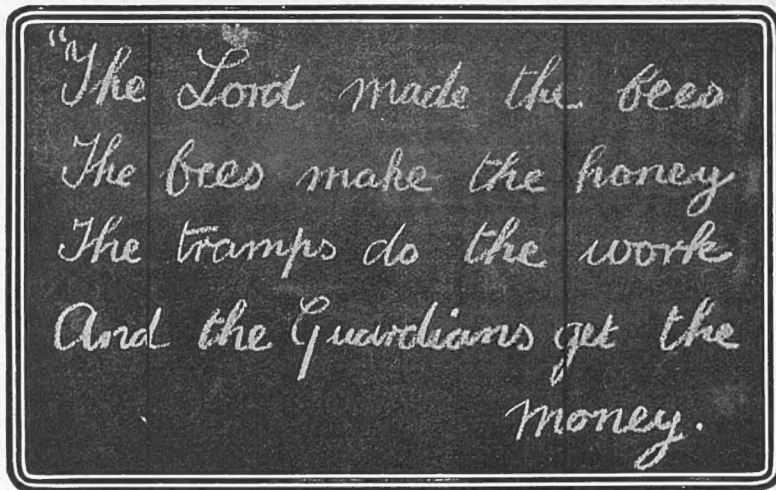 "The Lord made the bees
The bees make the honey
The tramps do the work
And the Guardians get the
money.